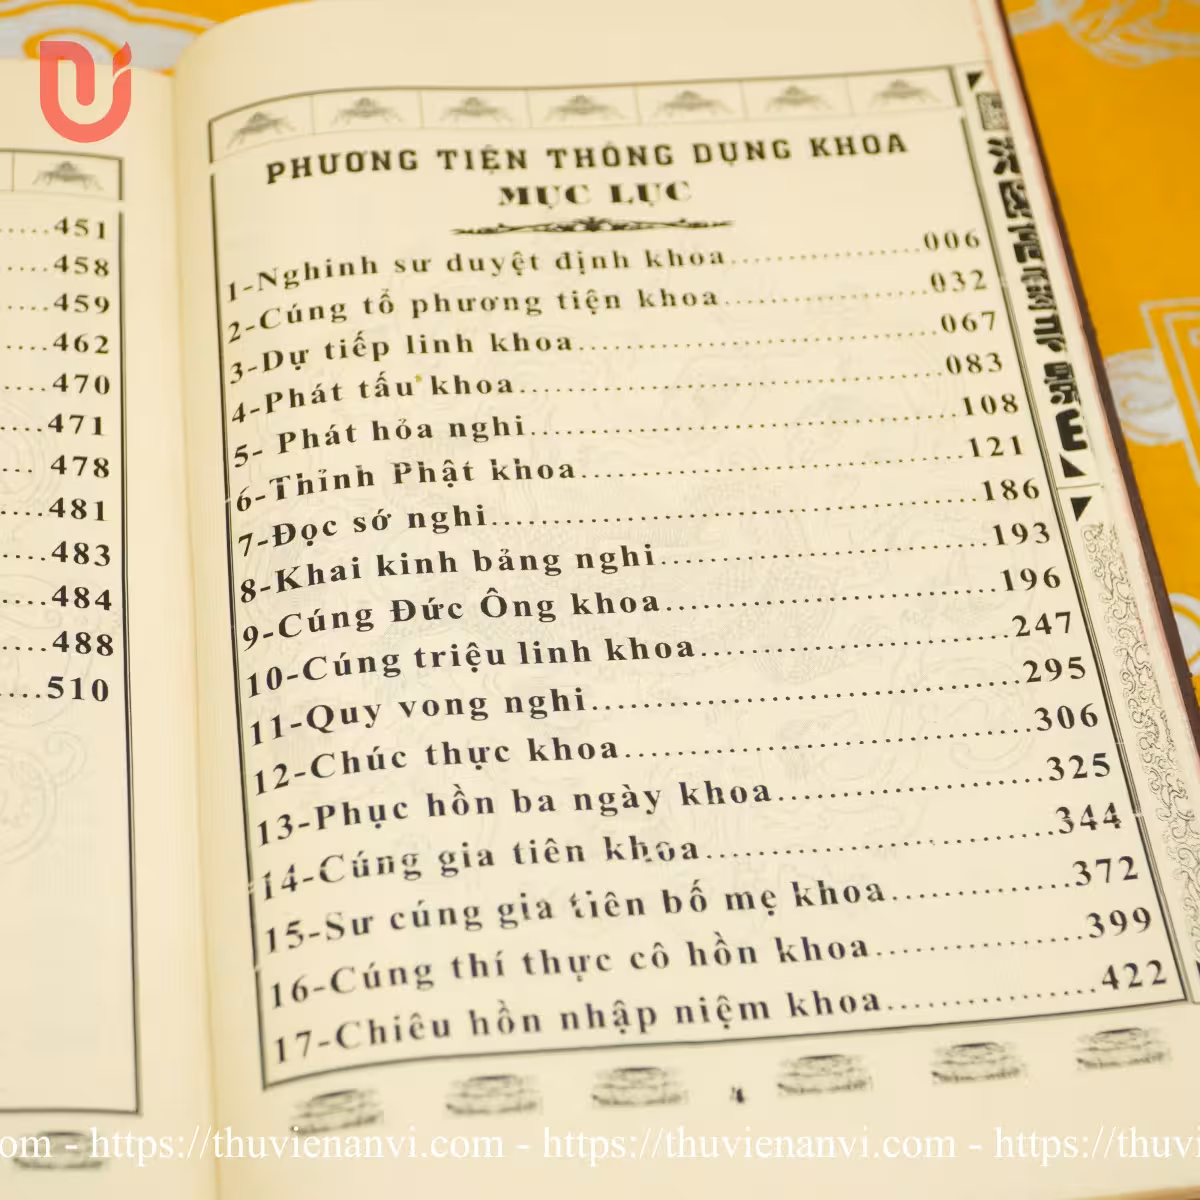 .....451
.....458
.....459
.....462
....470
....471
... 478
....481
....483
....484
....488
....510
PHƯƠNG TIỆN THÔNG DỤNG KHOA
MỤC LỤC
1-Nghinh sư duyệt định khoa................006
2-Cúng tổ phương tiện khoa.................032
3-Dự tiếp linh khoa..............................067
4-Phát tấu khoa...................................083
5- Phát hỏa nghi..................................108
6-Thỉnh Phật khoa..............................121
7-Đọc sớ nghi.....................................186
8-Khai kinh bảng nghi.........................193
9-Cúng Đức Ông khoa........................196
10-Cúng triệu linh khoa.......................247
11-Quy vong nghi...............................295
12-Chúc thực khoa..............................306
13-Phục hồn ba ngày khoa..................325
14-Cúng gia tiên khoa.........................344
15-Sư cúng gia tiên bố mẹ khoa...........372
16-Cúng thí thực cô hồn khoa..............399
17-Chiêu hồn nhập niệm khoa.............422
4
.com - https://thuvienanvi.com - https://thuvienanvi.com - https://thuvi